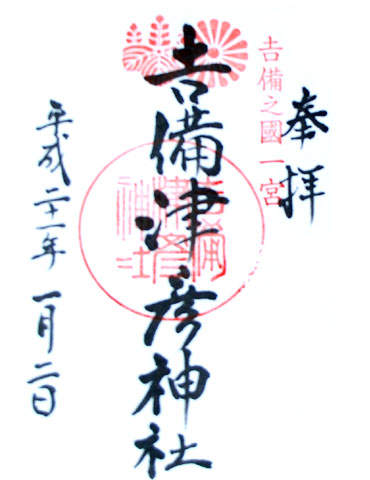 奉拝
吉備之國一宮
吉備津彦神社
吉備津彦神社
平成二十一年一月二日